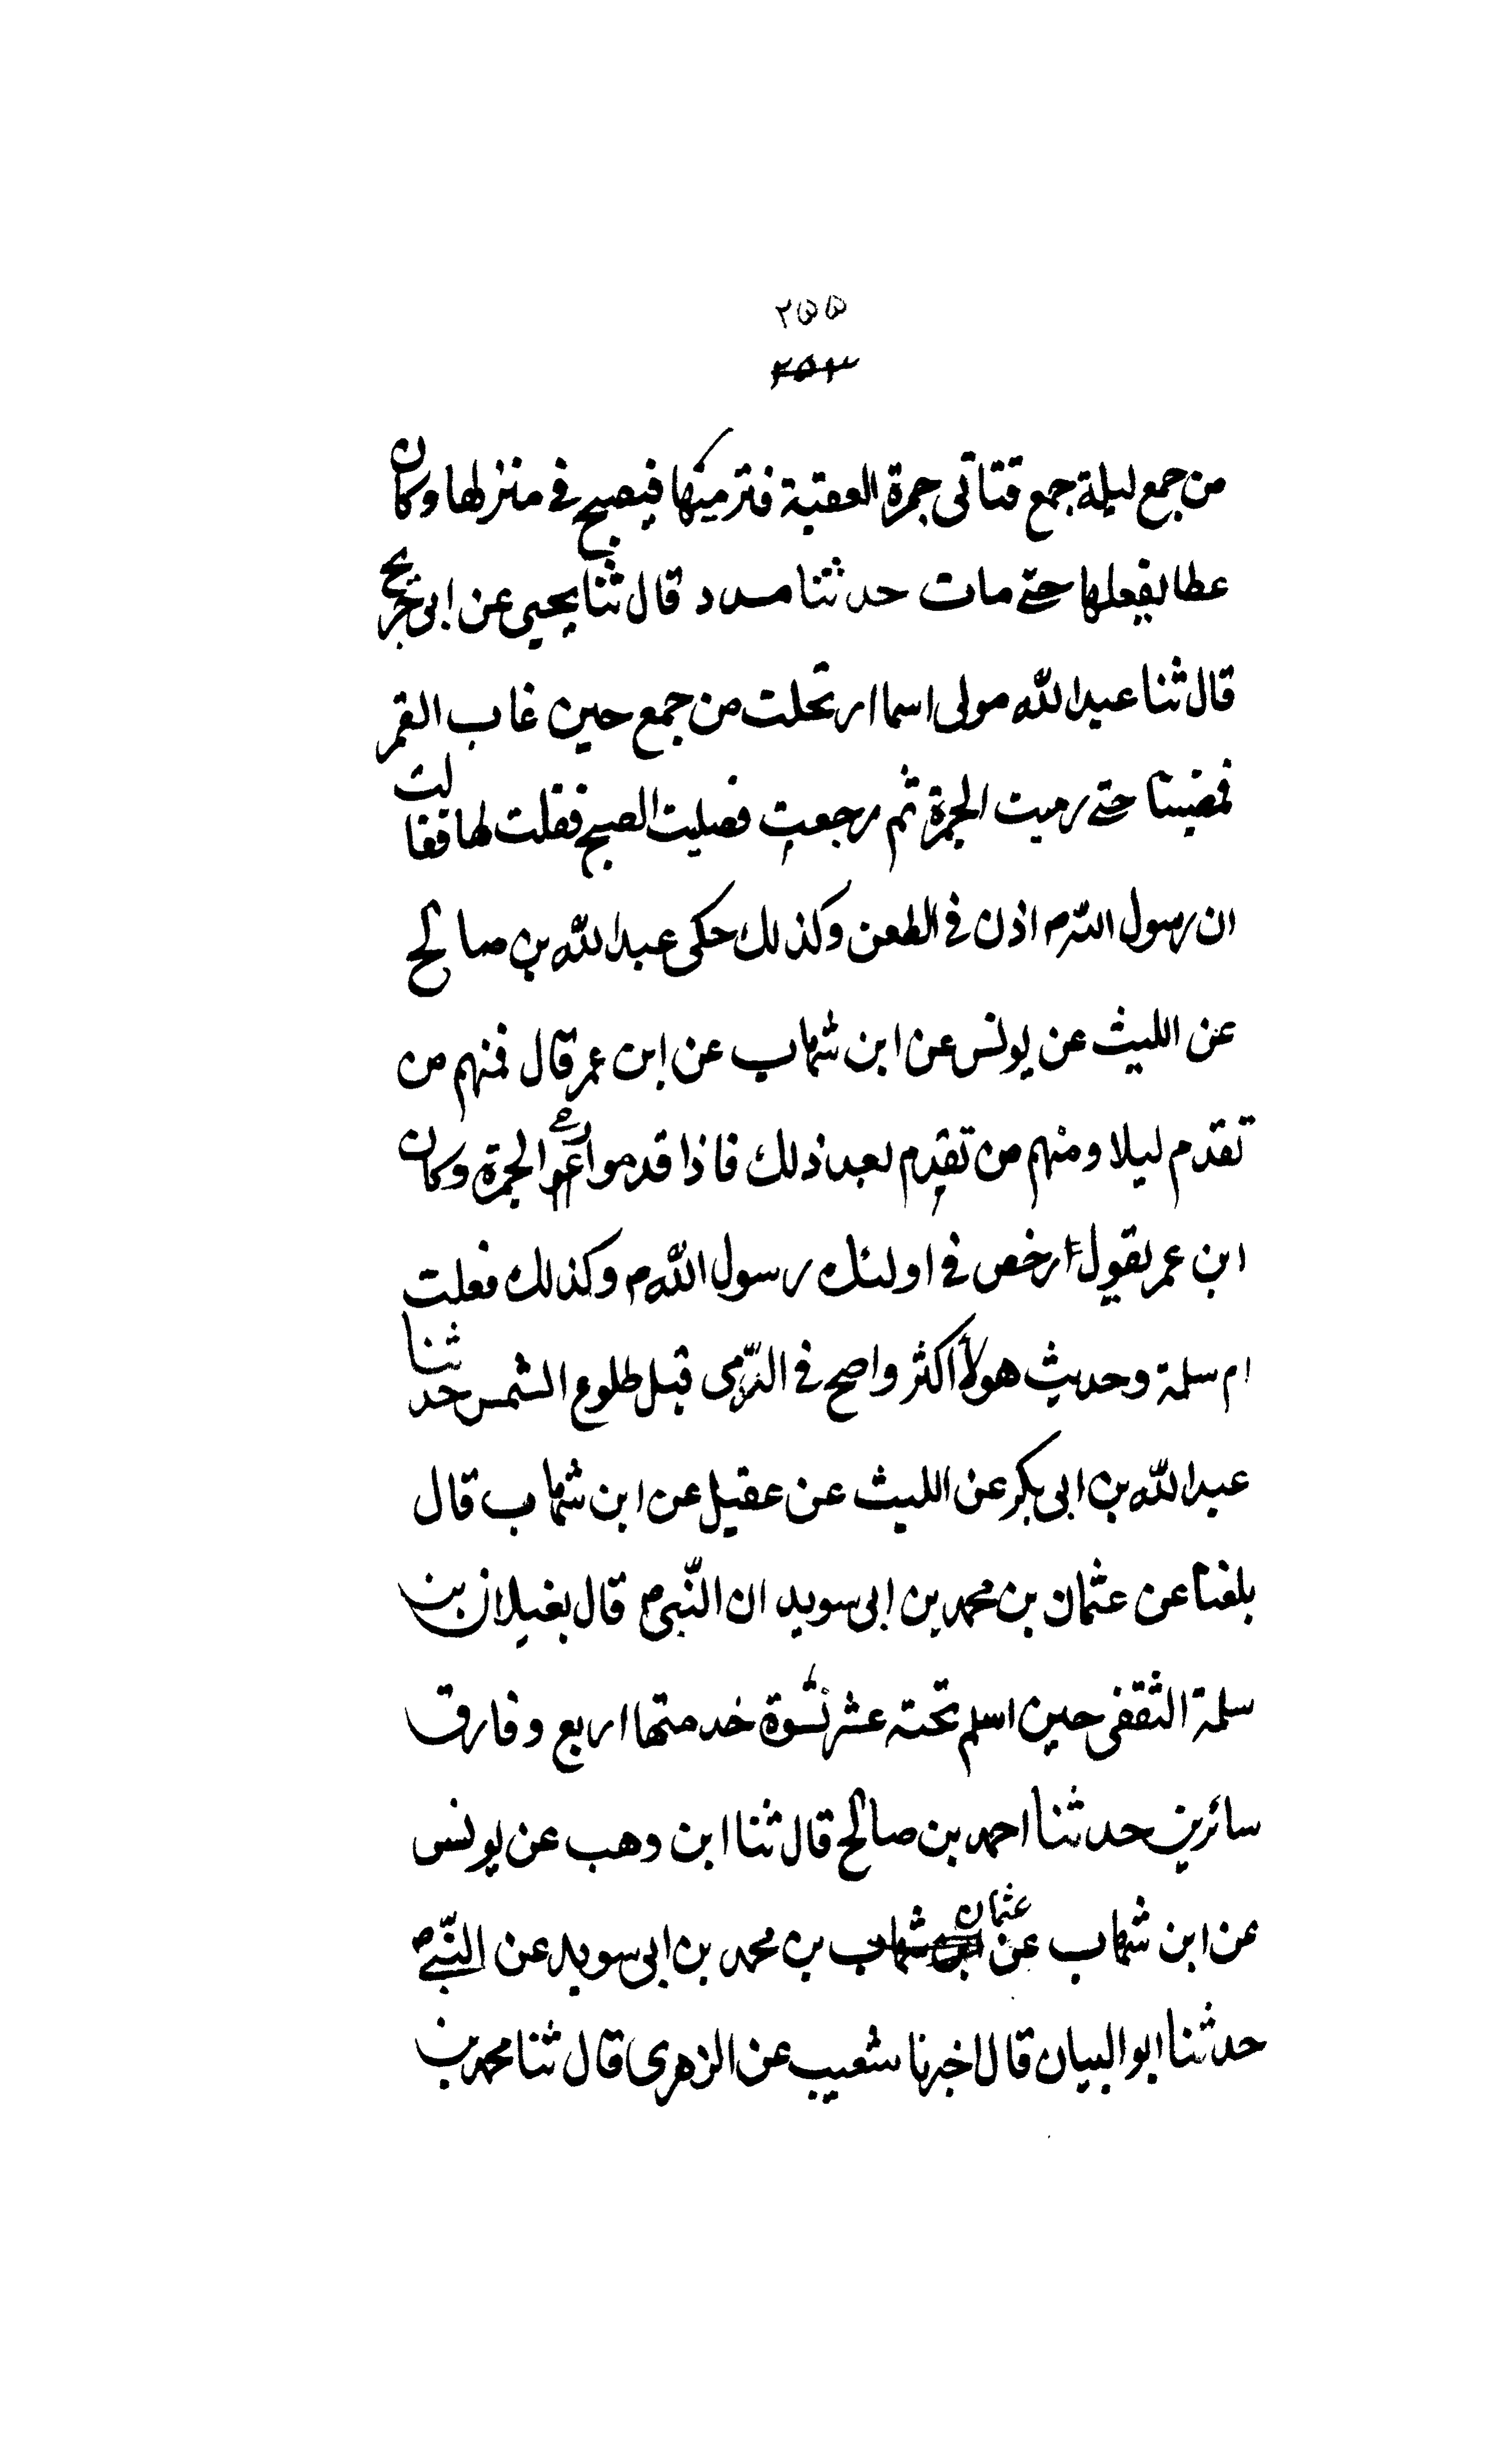 ٢٥٥
٢٥٣
من جمع ليلة جمع فتاتى جمرة العقبة فترميها فيصبح في منزلها وكان
عطا يفعلها حتى مات حدثنا مسدد قال ثنا يحيى عن ابى جريج
قال ثنا عبد الله مولى اسما ارتحلت من جمع حين غاب القمر
فمضينا حتى رميت الجمرة ثم رجعت فصليت الصبح فقلت لها فقالت
ان رسول الله م اذن في الطعن وكذلك حكى عبد الله بن صالح
عن الليث عن يونس عن ابن شهاب عن ابن عمر قال فمنهم من
تقدم ليلا ومنهم من تقدم بعد ذلك فاذا قدموا الجمرة وكان
ابن عمر يقول ارخص في اولئك رسول الله م وكذلك فعلت
ام سلمة وحديث هولأ اكثر واصح في الرّمى قبل طلوع الشمس حدثنا
عبد الله بن ابى بكر عن الليث عن عقيل عن ابن شهاب قال
بلغنا عن عثمان بن محمد بن ابى سويد ان النّبى ص قال بغيلان بن
سلمة الثقفى حين اسلم تحته عشر نسوة خد منها اربع وفارق
سائرين حدثنا احمد بن صالح قال ثنا ابن وهب عن يونس
عن ابن شهاب عن عثمان ابن شهاب بن محمد بن ابى سويد عن النّبى ص
حدثنا ابو اليمان قال اخبرنا شعيب عن الزهرى قال ثنا محمد بن